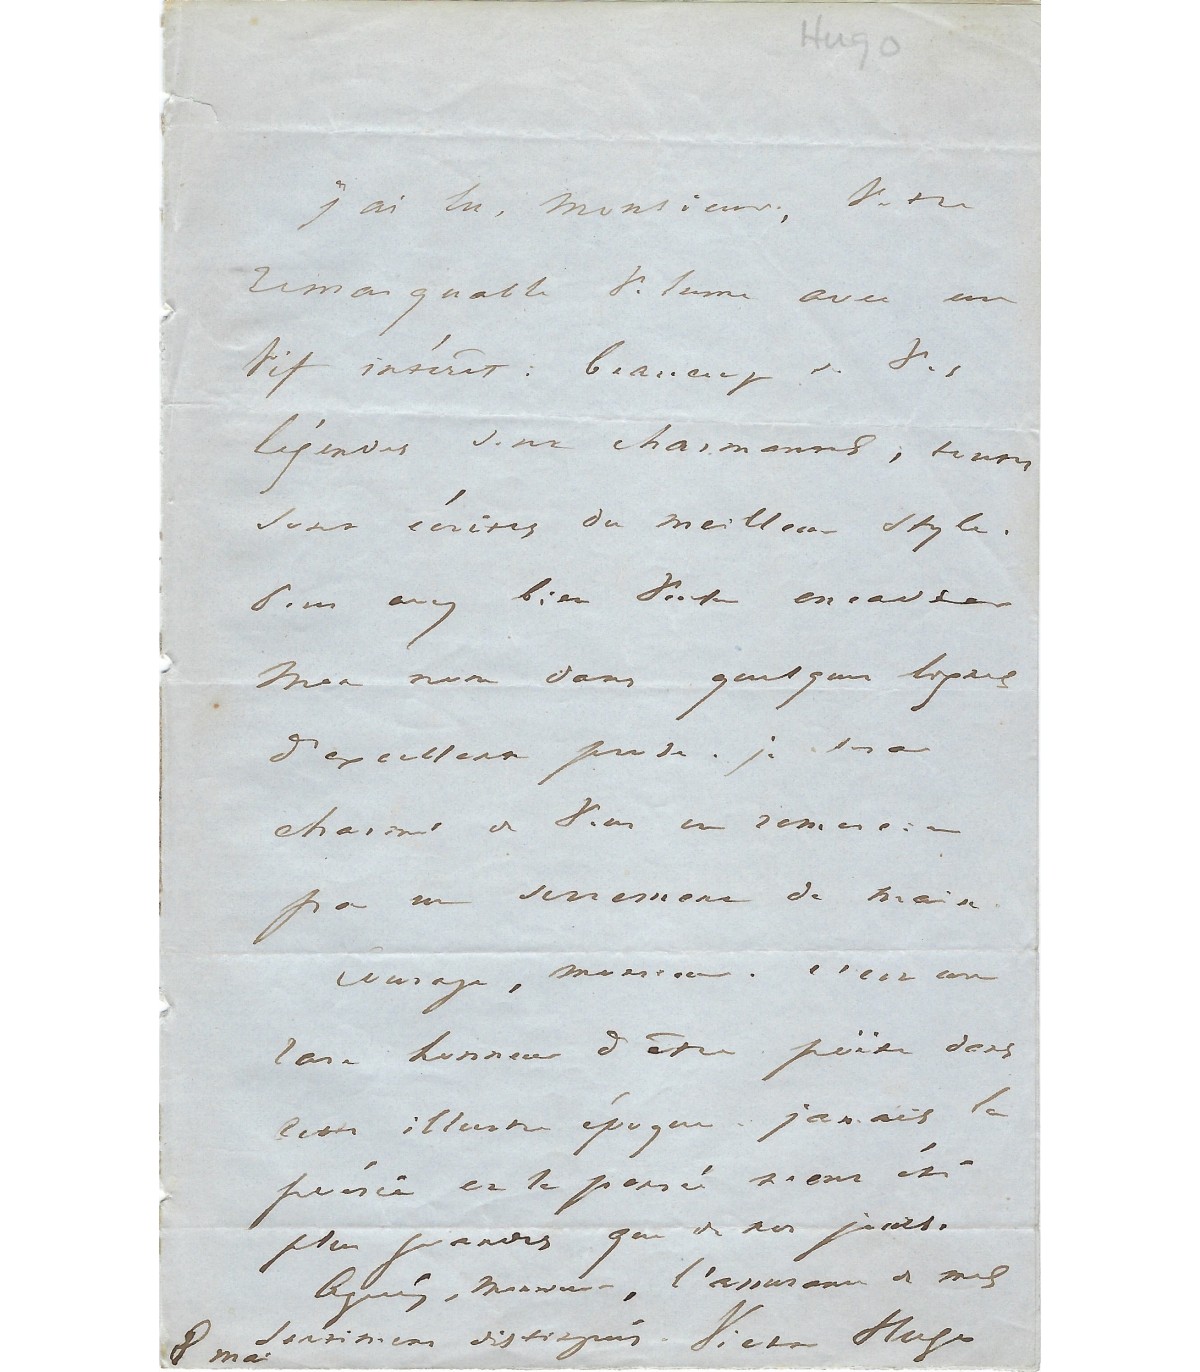 Hugo
j'ai lu, Monsieur, votre
remarquable volume avec un
vif intérêt : beaucoup de vos
légendes sont charmantes ; toutes
sont écrites du meilleur style.
Vous avez bien voulu encadrer
mon nom dans quelques lignes
d'excellente prose. je serai
charmé de vous en remercier
par un serrement de main.
Courage, monsieur. c'est un
rare honneur d'être poëte dans
cette illustre époque. jamais la
poésie et la pensée n'ont été
plus grandes que de nos jours.
Agréez, Monsieur, l'assurance de mes
sentimens distingués. Victor Hugo
8 mai